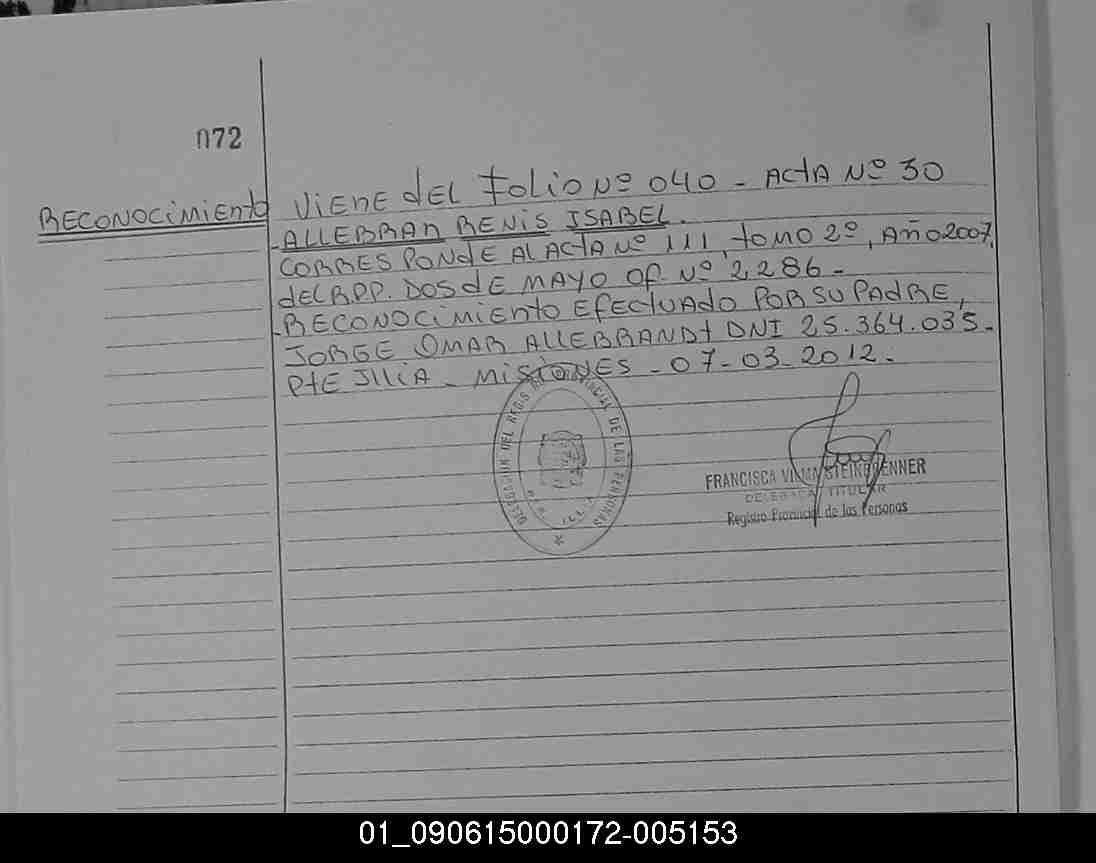 072
RECONOCIMIENTO
VIENE DEL FOLIO Nº 040 - ACTA Nº 30
- ALLEBRAN RENIS ISABEL.
CORRESPONDE AL ACTA Nº 111, TOMO 2º, AÑO 2007,
DEL R.P.P. DOS DE MAYO OF. Nº 2,286 -
- RECONOCIMIENTO EFECTUADO POR SU PADRE,
JORGE OMAR ALLEBRANDT DNI 25.364.035-
PTE ILLIA - MISIONES - 07-03-2012-
DELEGACION DEL REGISTRO PROVINCIAL DE LAS PERSONAS
FRANCISCA VILMA STEINBRENNER
DELEGADA TITULAR
Registro Provincial de las Personas
01_090615000172-005153